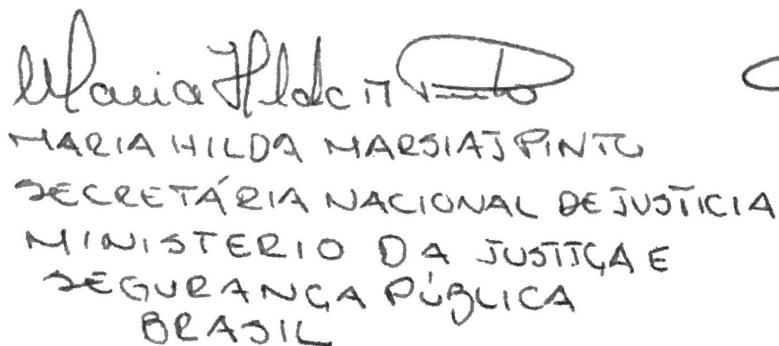 Maria Hilda M Pinto
MARIA HILDA MARSIAJ PINTO
SECRETÁRIA NACIONAL DE JUSTICIA
MINISTERIO DA JUSTIÇA E
SEGURANÇA PÚBLICA
BRASIL